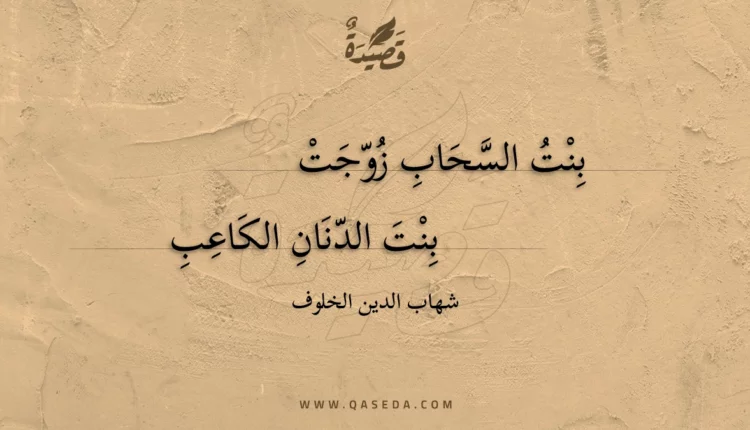 قَصِيْدَةٌ
بِنْتُ السَّحَابِ زُوّجَتْ
بِنْتَ الدّنَانِ الكَاعِبِ
شهاب الدين الخلوف
WWW.QASEDA.COM